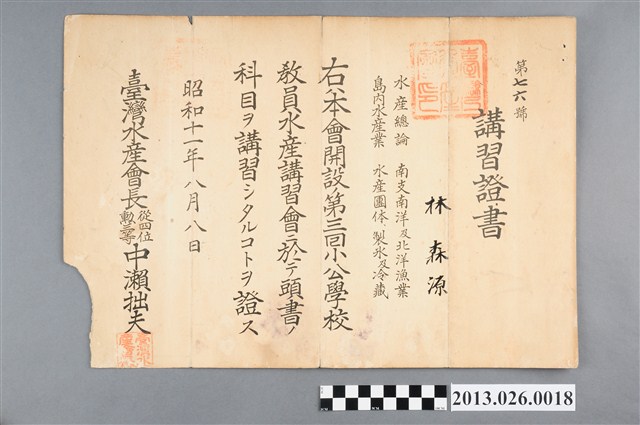 第七六號
講習證書
林森源
水產總論 南支南洋及北洋漁業
島內水產業 水產團体 製氷及冷藏
右ハ本會開設ノ第三回小公學校
教員水產講習會ニ於テ頭書ノ
科目ヲ講習シタルコトヲ證ス
昭和十一年八月八日
臺灣水產會長 從四位 勲三等 中瀨拙夫
2013.026.0018